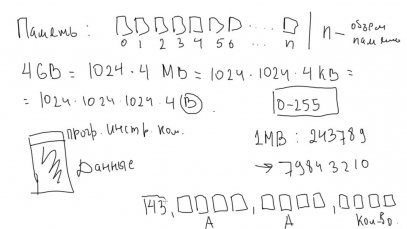 Память:
0 1 2 3 4 5 6 ... n
n – объем памяти
4GB = 1024 · 4 MB = 1024 · 1024 · 4 kB =
= 1024 · 1024 · 1024 · 4 B.
0-255
прогр. инстр. ком.
Данные
1MB : 243789
→ 79843210
143, , ,
A A кол-во